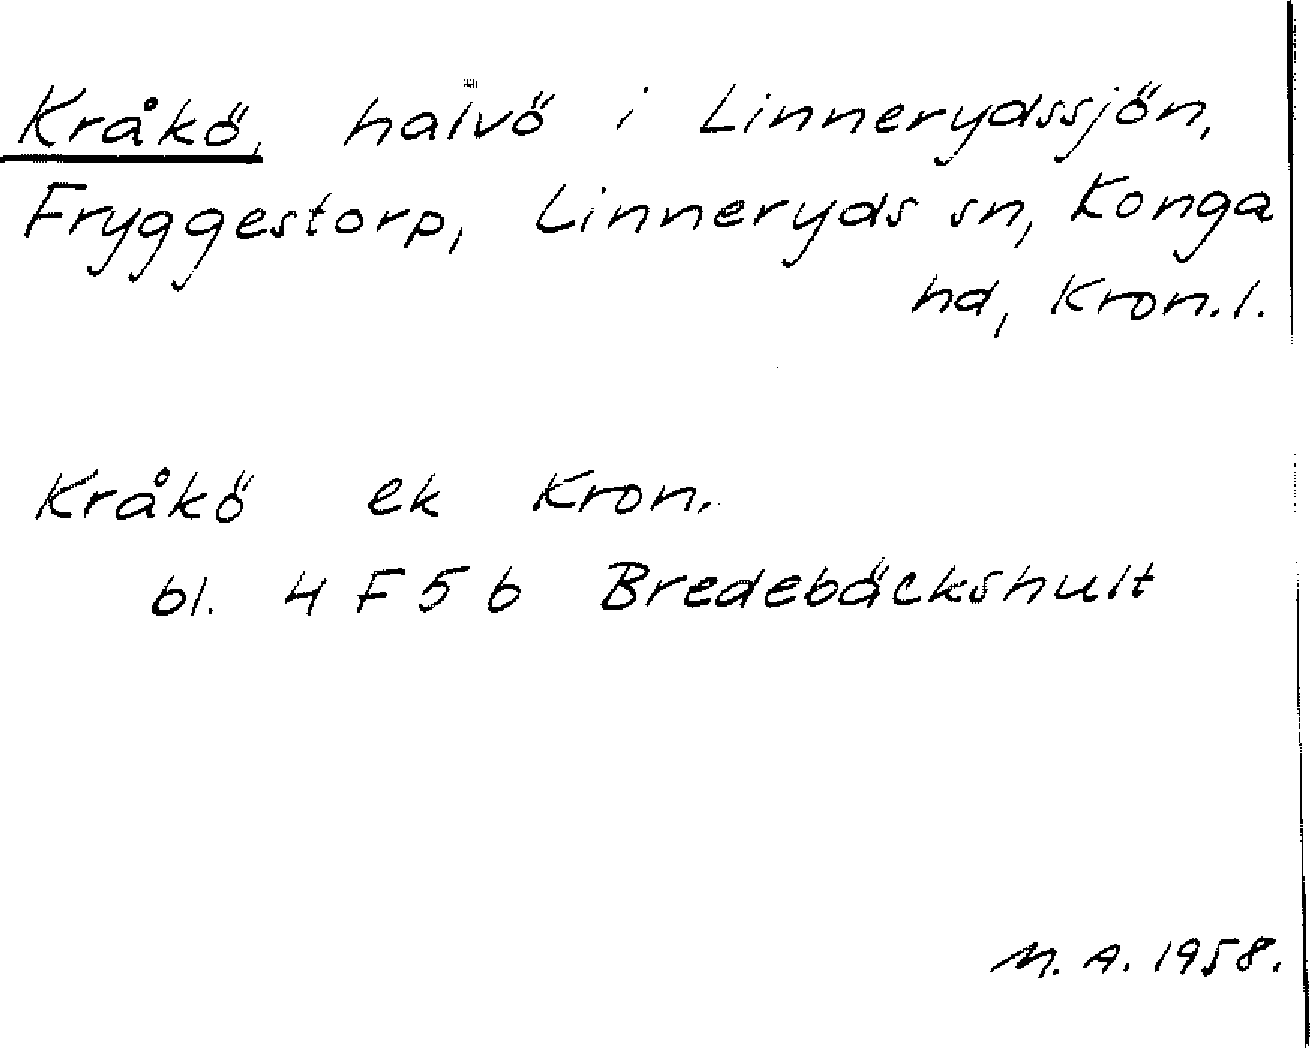 Kråkö, halvö i Linnerydssjön,
Fryggestorp, Linneryds sn, Konga
hd, Kron.l.
Kråkö ek Kron.
bl. 4 F 5 b Bredebäckshult
M. A. 1958.